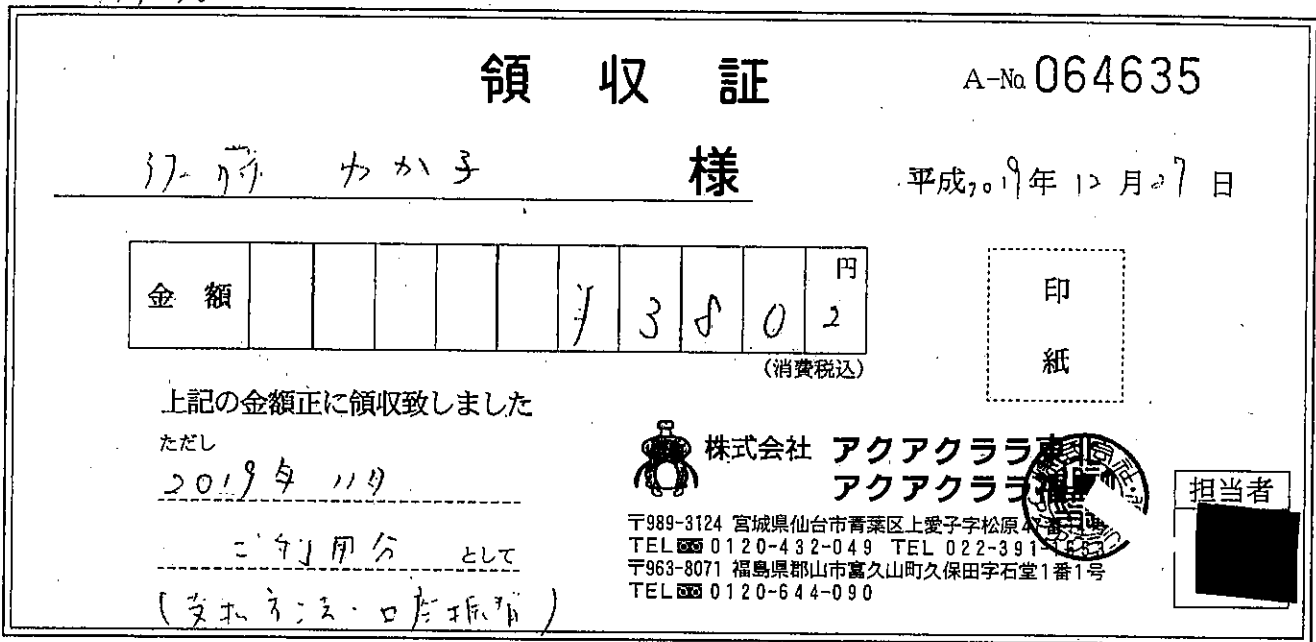 領収証
A-No 064635
わか子 様
平成2019年12月27日
金額 ¥3802円
(消費税込)
印紙
上記の金額正に領収致しました
ただし
2019年11月
ご利用分 として
(支払方法・口座振替)
株式会社 アクアクララ東
アクアクララ
〒989-3124 宮城県仙台市青葉区上愛子字松原47番
TEL 0120-432-049 TEL 022-391-
〒963-8071 福島県郡山市富久山町久保田字石堂1番1号
TEL 0120-644-090
担当者